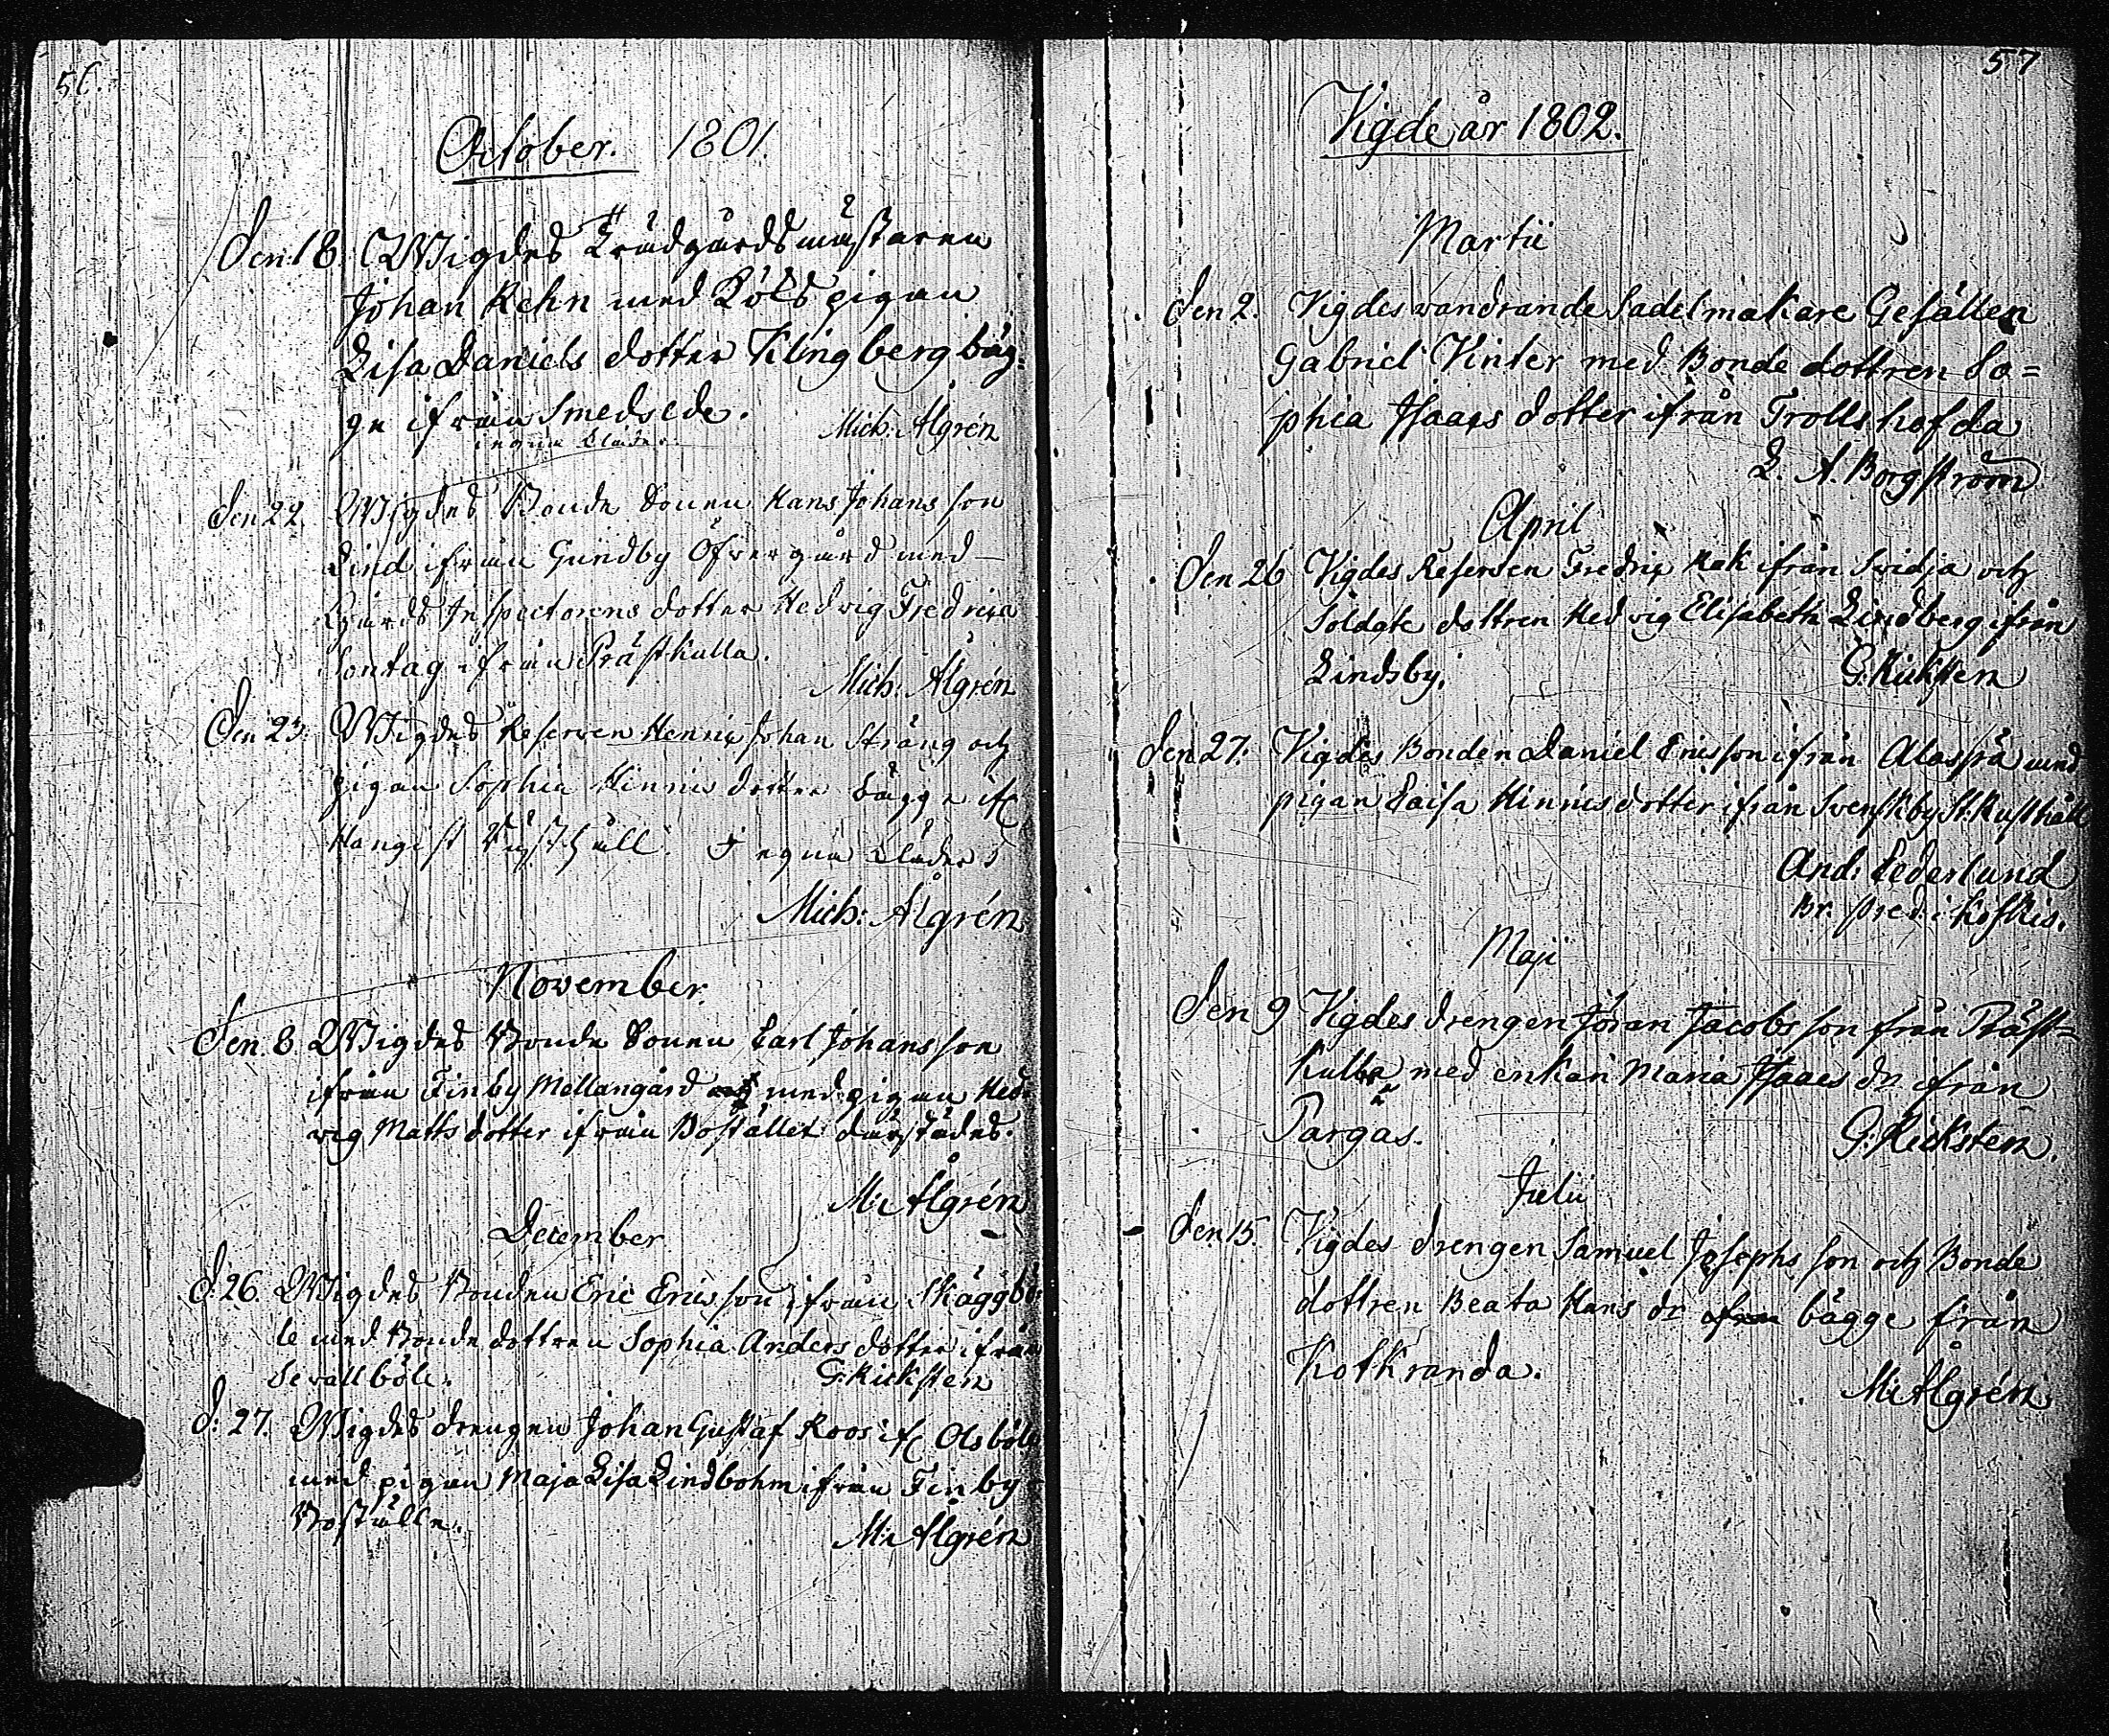 56.
October. 1801
Den 18. Wigdes Trädgårdsmästaren
Johan Rehn med Kökspigan
Lisa Daniels dotter Klingberg båg-
ge ifrån Smedsede.
i egna kläder
Mich: Ålgrén
Den 22. Wigdes Bonde Sonen Hans Johansson
Lind ifrån Gundby Öfvergård med
Gårds Inspectorens dotter Hedvig Fredrica
Sontag ifrån Prästkulla.
Mich: Ålgrén
Den 23. Wigdes Reserven Henric Johan Sträng och
pigan Sophia Hinnris dotter bägge if:
Hangist Rusthåll. I egna kläder
Mich: Ålgrén
November.
Den 8. Wigdes Bonde Sonen Carl Johansson
ifrån Finby Mellangård med pigan Hed-
vig Matts dotter ifrån Bostället därstädes.
M: Ålgrén
December
d: 26. Wigdes Bonden Eric Ericsson ifrån Skäggbö-
le med Bonde dottren Sophia Anders dotter ifrån
Sevallböle.
G: Rickstén
d: 27. Wigdes drengen Johan Gustaf Roos if: Olsböle
med pigan Maja Lisa Lindbohm ifrån Finby
Boställe.
M: Ålgrén
57
Vigde år 1802.
Martii
Den 2. Vigdes vandrande Sadelmakare Gesällen
Gabriel Vinter med Bonde dottren So=
phia Isaacs dotter ifrån Trollshofda
L. A. Borgström
April
Den 26 Vigdes Reserven Fredric Rak ifrån Svidja och
Soldate dottren Hedvig Elisabeth Lindberg ifrån
Lindsby.
G: Rickstén
Den 27. Vigdes Bonden Daniel Ericsson ifrån Alasjrä med
pigan Caisa Hinris dotter ifrån Svenskby St. Rusthåll
And: Cederlund
Br. pred: i Koskis.
Maji
Den 9 Vigdes drengen Jöran Jacobsson från Präst=
kulla med enkan Maria Isaacs dr ifrån
Pargas.
G: Rickstén.
Julii
Den 15. Vigdes drengen Samuel Josephsson och Bonde
dottren Beata Hans dr bägge från
Kotkranda.
M: Ålgrén